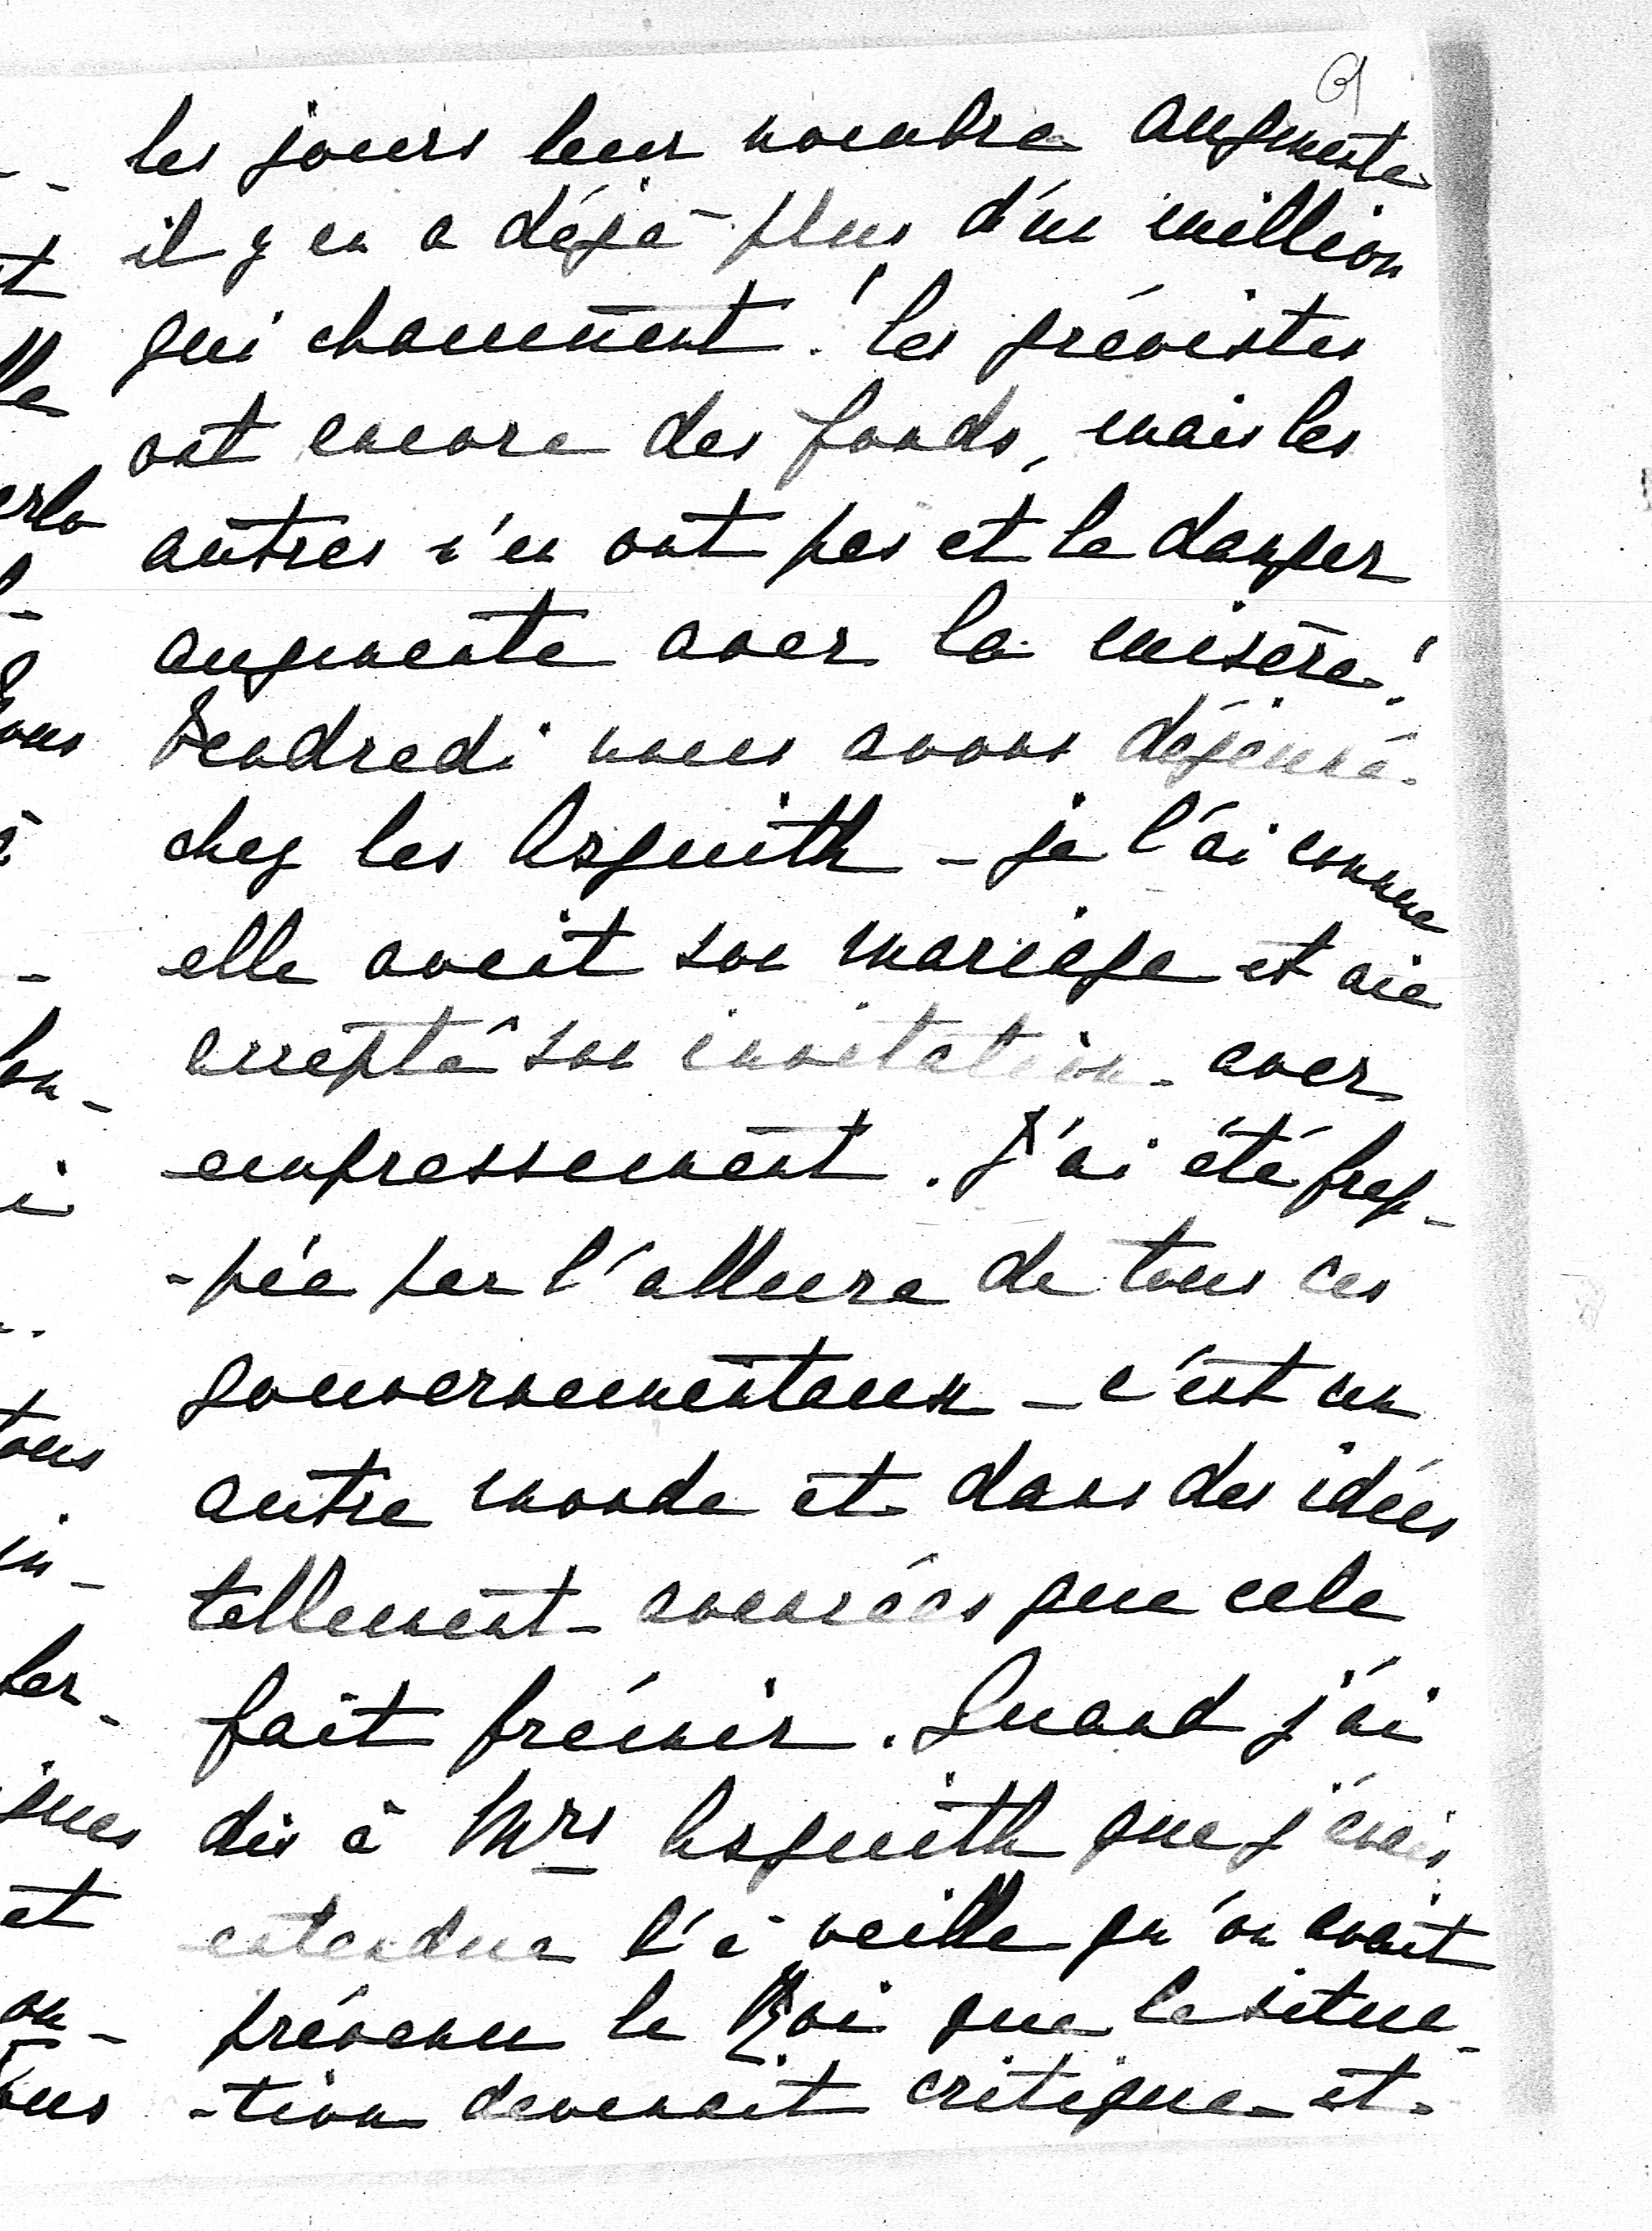 9
les jours leur nombre augmente
il y en a déjà plus d'un million
qui chaument ! les grévistes
ont encore des fonds, mais les
autres n'en ont pas et le danger
augmente avec la misère !
Vendredi nous avons déjeuné
chez les Asquith – je l'ai connue
elle avait son mariage et aie
accepté son invitation avec
empressement. J'ai été frap-
-pée par l'allure de tous ces
gouvernementaux – c'est un
autre monde et dans des idées
tellement avancées que cela
fait frémir. Quand j'ai
dis à Mrs Asquith que j'avais
entendue l'à veille qu'on avait
prévenu le Roi que la situa-
-tion devenait critique et